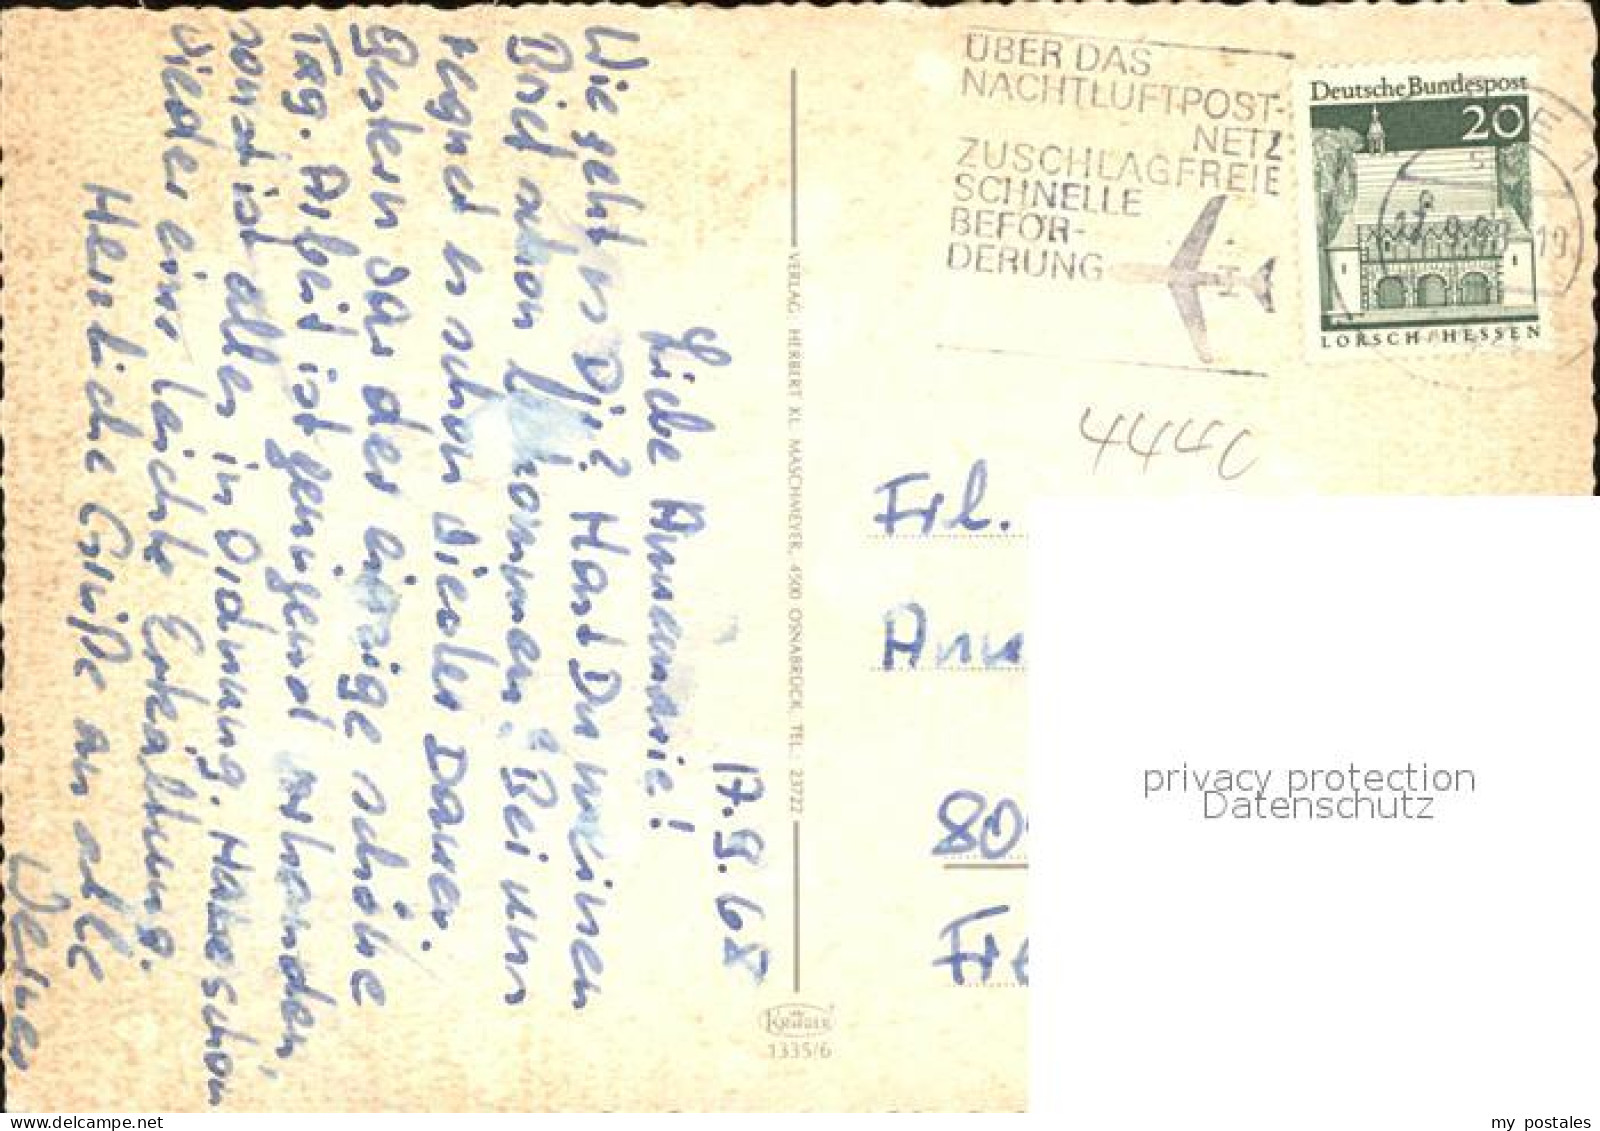 17.9.68
Liebe Annemarie!
Wie geht es Dir? Hast Du meinen
Brief schon bekommen? Bei uns
regnet es schon wieder Dauer.
Gestern war der einzige schöne
Tag. Arbeit ist genügend vorhanden,
sonst ist alles in Ordnung. Habe schon
wieder eine leichte Erkältung.
Herzliche Grüße an alle
Werner
VERLAG HERBERT XL. MASCHMEYER, 4500 OSNABRÜCK, TEL. 23722
Krüger
1335/6
ÜBER DAS
NACHTLUFTPOST-
NETZ
ZUSCHLAGFREIE
SCHNELLE
BEFÖR-
DERUNG
Deutsche Bundespost
20
LORSCH/HESSEN
19
444c
Frl.
Ann
80
Fre
privacy protection
Datenschutz
my postales